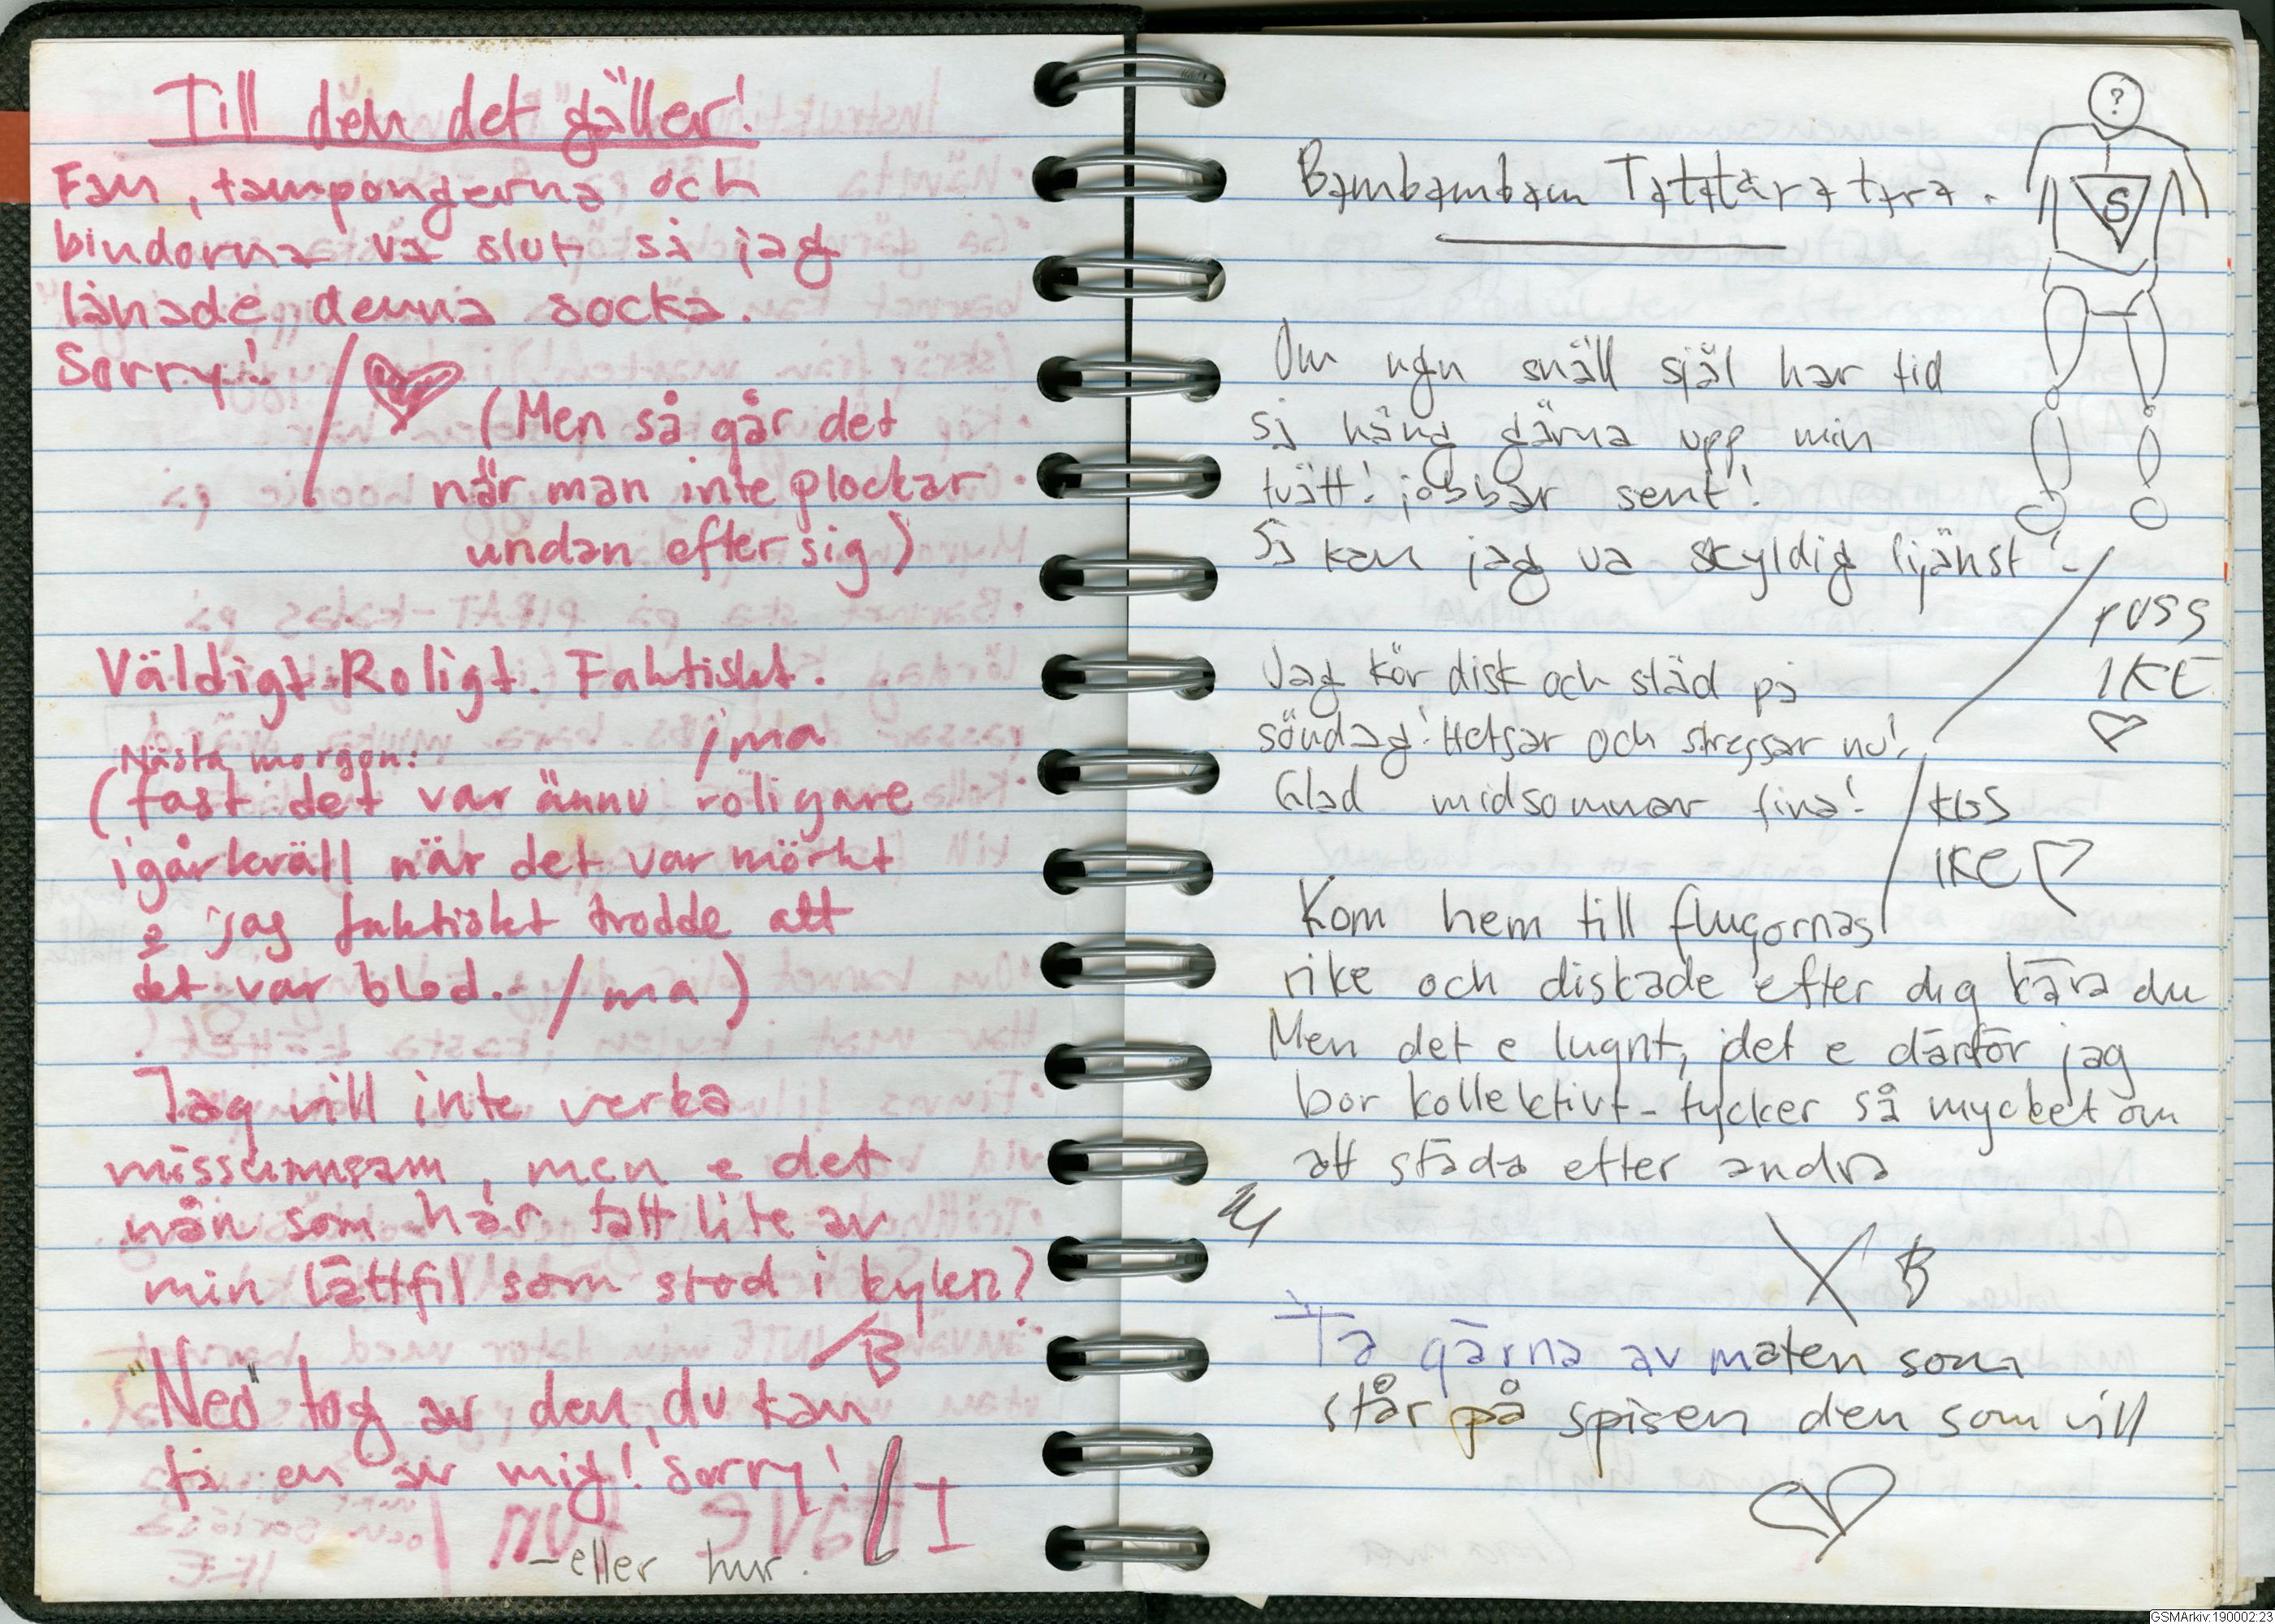 Till den det gäller!
Fan, tampongerna och
bindorna va slut så jag
lånade denna socka.
Sorry! / ♡
(Men så går det
när man inte plockar
undan efter sig)
Väldigt Roligt. Faktiskt.
/ma
Nästa morgon:
(fast det var ännu roligare
igårkväll när det var mörkt
& jag faktiskt trodde att
det var blod. /ma)
Jag vill inte verka
missunnsam, men e det
nån som har tatt lite av
min lättfil som stod i kylen?
/B
"Neo" tog av den, du kan
få en av mig! Sorry! / I
- eller hur.
?
S
Bambambam Tattaratara.
Om ngn snäll själ har tid
så häng gärna upp min
tvätt! jobbar sent!
Så kan jag va skyldig tjänst!
/ puss
IKE
♡
Jag kör disk och städ på
söndag! Hetsar och stressar nu!
Glad midsommar fina! / KGS
IKE ♡
Kom hem till flugornas
rike och diskade efter dig kära du
Men det e lugnt, det e därför jag
bor kollektivt - tycker så mycket om
att städa efter andra
X B
Ta gärna av maten som
står på spisen den som vill
♡
GSMArkiv:190002:23